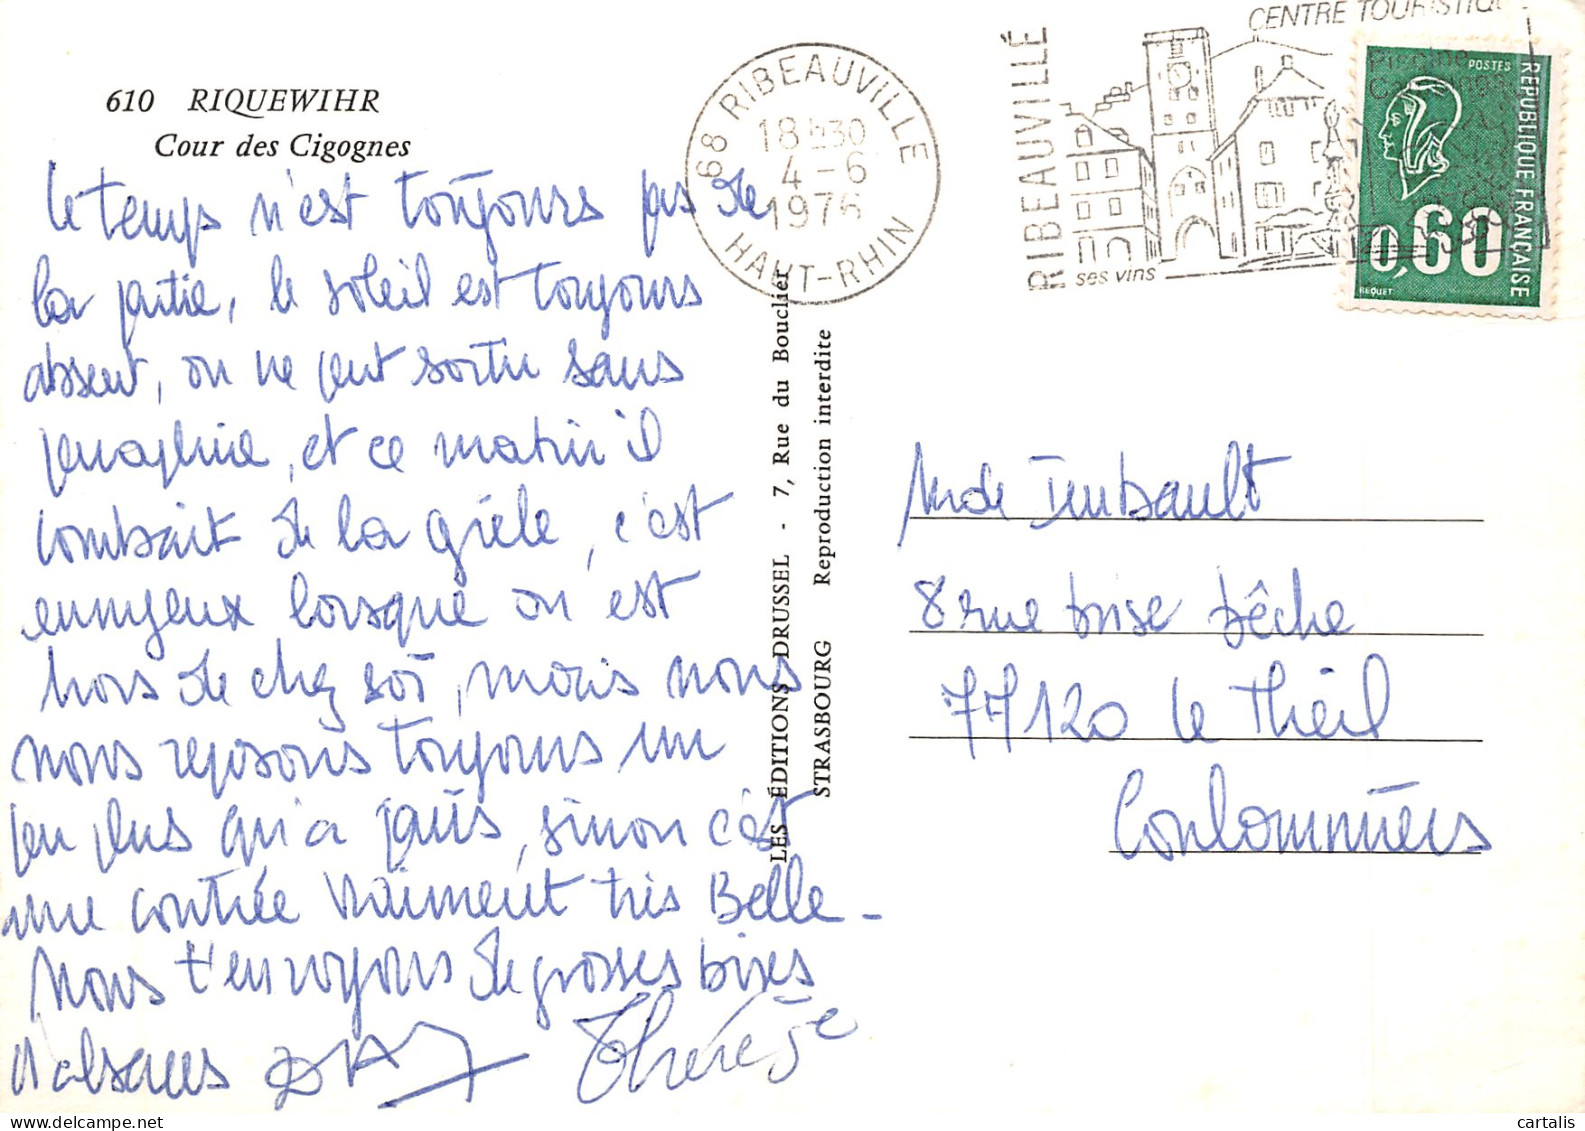 610 RIQUEWIHR
Cour des Cigognes
le temps n'est toujours pas de
la partie, le soleil est toujours
absent, on ne peut sortir sans
parapluie, et ce matin il
tombait de la grêle, c'est
ennuyeux lorsque on est
hors de chez soi, mais nous
nous reposons toujours un
peu plus qu'a Paris, sinon c'est
une contrée vraiment très Belle -
Nous t'envoyons de grosses bises
d'alsaces
Thérèse
LES ÉDITIONS DRUSSEL - 7, Rue du Bouclier
STRASBOURG Reproduction interdite
68 RIBEAUVILLE
18 H30
4 - 6
1976
HAUT-RHIN
RIBEAUVILLÉ
CENTRE TOURISTIQUE
ses vins
POSTES
REPUBLIQUE FRANÇAISE
0,60
BEQUET
Mde Imbault
8 rue brise bêche
77120 le Theil
Coulommiers
cartalis